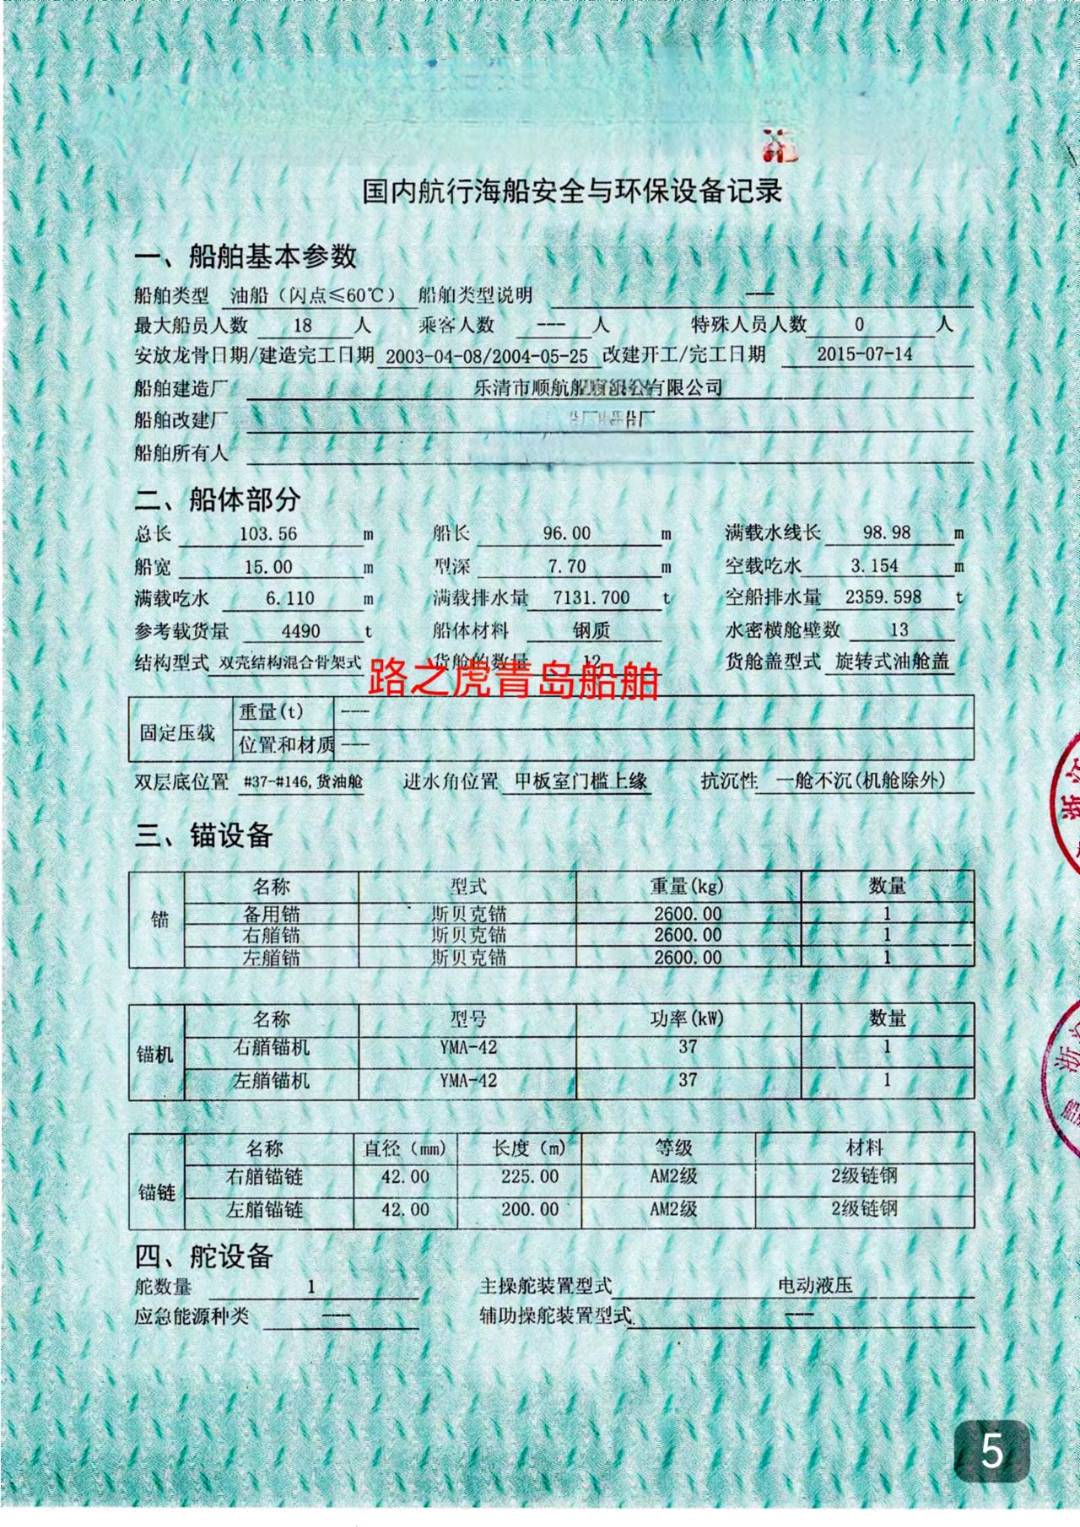 国内航行海船安全与环保设备记录
一、船舶基本参数
船舶类型 油船（闪点≤60℃） 船舶类型说明 ---
最大船员人数 18 人 乘客人数 --- 人 特殊人员人数 0 人
安放龙骨日期/建造完工日期 2003-04-08/2004-05-25 改建开工/完工日期 2015-07-14
船舶建造厂 乐清市顺航船有限公司
船舶改建厂 厂
船舶所有人
二、船体部分
总长 103.56 m 船长 96.00 m 满载水线长 98.98 m
船宽 15.00 m 型深 7.70 m 空载吃水 3.154 m
满载吃水 6.110 m 满载排水量 7131.700 t 空船排水量 2359.598 t
参考载货量 4490 t 船体材料 钢质 水密横舱壁数 13
结构型式 双壳结构混合骨架式 货舱的数量 12 货舱盖型式 旋转式油舱盖
路之虎青岛船舶
固定压载 重量(t) ---
位置和材质 ---
双层底位置 #37-#146,货油舱 进水角位置 甲板室门槛上缘 抗沉性 一舱不沉(机舱除外)
三、锚设备
锚 名称 型式 重量(kg) 数量
备用锚 斯贝克锚 2600.00 1
右艏锚 斯贝克锚 2600.00 1
左艏锚 斯贝克锚 2600.00 1
锚机 名称 型号 功率(kW) 数量
右艏锚机 YMA-42 37 1
左艏锚机 YMA-42 37 1
锚链 名称 直径（mm） 长度（m） 等级 材料
右艏锚链 42.00 225.00 AM2级 2级链钢
左艏锚链 42.00 200.00 AM2级 2级链钢
四、舵设备
舵数量 1 主操舵装置型式 电动液压
应急能源种类 --- 辅助操舵装置型式 ---
5
浙江
浙
船